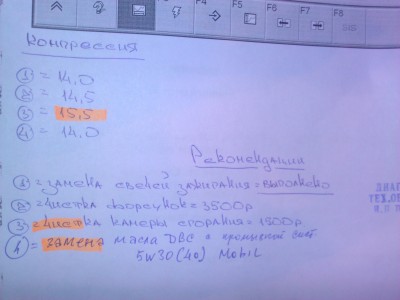 F4 F5 F6 F7 F8
Компрессия
① = 14,0
② = 14,5
③ = 15,5
④ = 14,0
Рекомендации
① = замена свечей зажигания = выполнено
② = чистка форсунок = 3500р
③ = чистка камеры сгорания = 1500р
④ = замена масла ДВС +
5W30(40) Mobil
ДИАГ
ТЕХ.ОБ